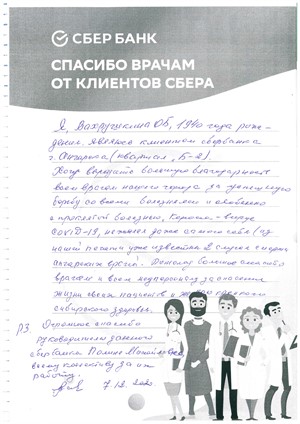 СБЕР БАНК
СПАСИБО ВРАЧАМ
ОТ КЛИЕНТОВ СБЕРА
Я, Вахрушкина ОБ, 1940 года рож-
дения. Являюсь клиентом сбербанка
г. Ангарска (квартал, Б-2).
Хочу выразить большую благодарность
всем врачам нашего города за
борьбу со всеми болезнями и особенно
с проклятой болезнью, Корона-вирус
COVID-19, не жалея даже самого себя (из
нашей печати уже известны 2 случая смерти
ангарских врачей. Большое спасибо
врачам и всему медперсоналу за спасение
жизни своих пациентов и
сибирского здоровья.
Огромное спасибо
руководителю данного
сбербанка Полине
всему коллективу за их
работу.
7.12.2020